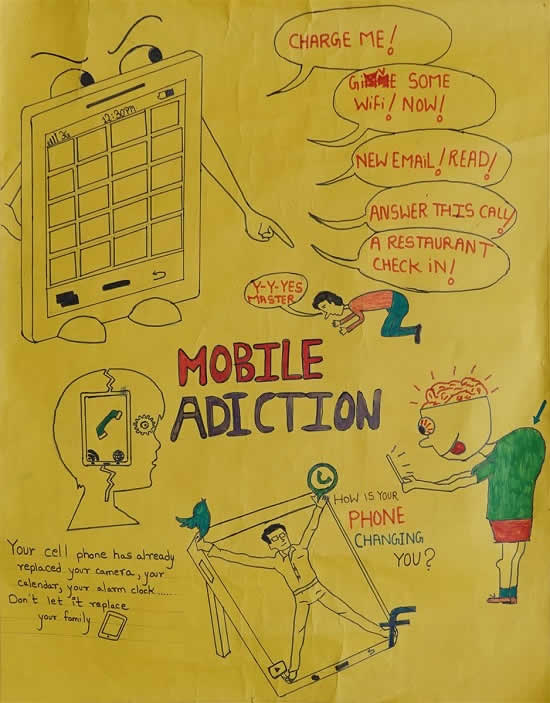 CHARGE ME!
SOME
Wifi! NOW!
NEW EMAIL! READ!
ANSWER THIS CALL!
A RESTAURANT
CHECK IN!
3G
12:30PM
Y-Y-YES
MASTER
MOBILE
ADICTION
HOW IS YOUR
PHONE
CHANGING
YOU?
Your cell phone has already
replaced your camera, your
calendar, your alarm clock.....
Don't let it replace
your family
f